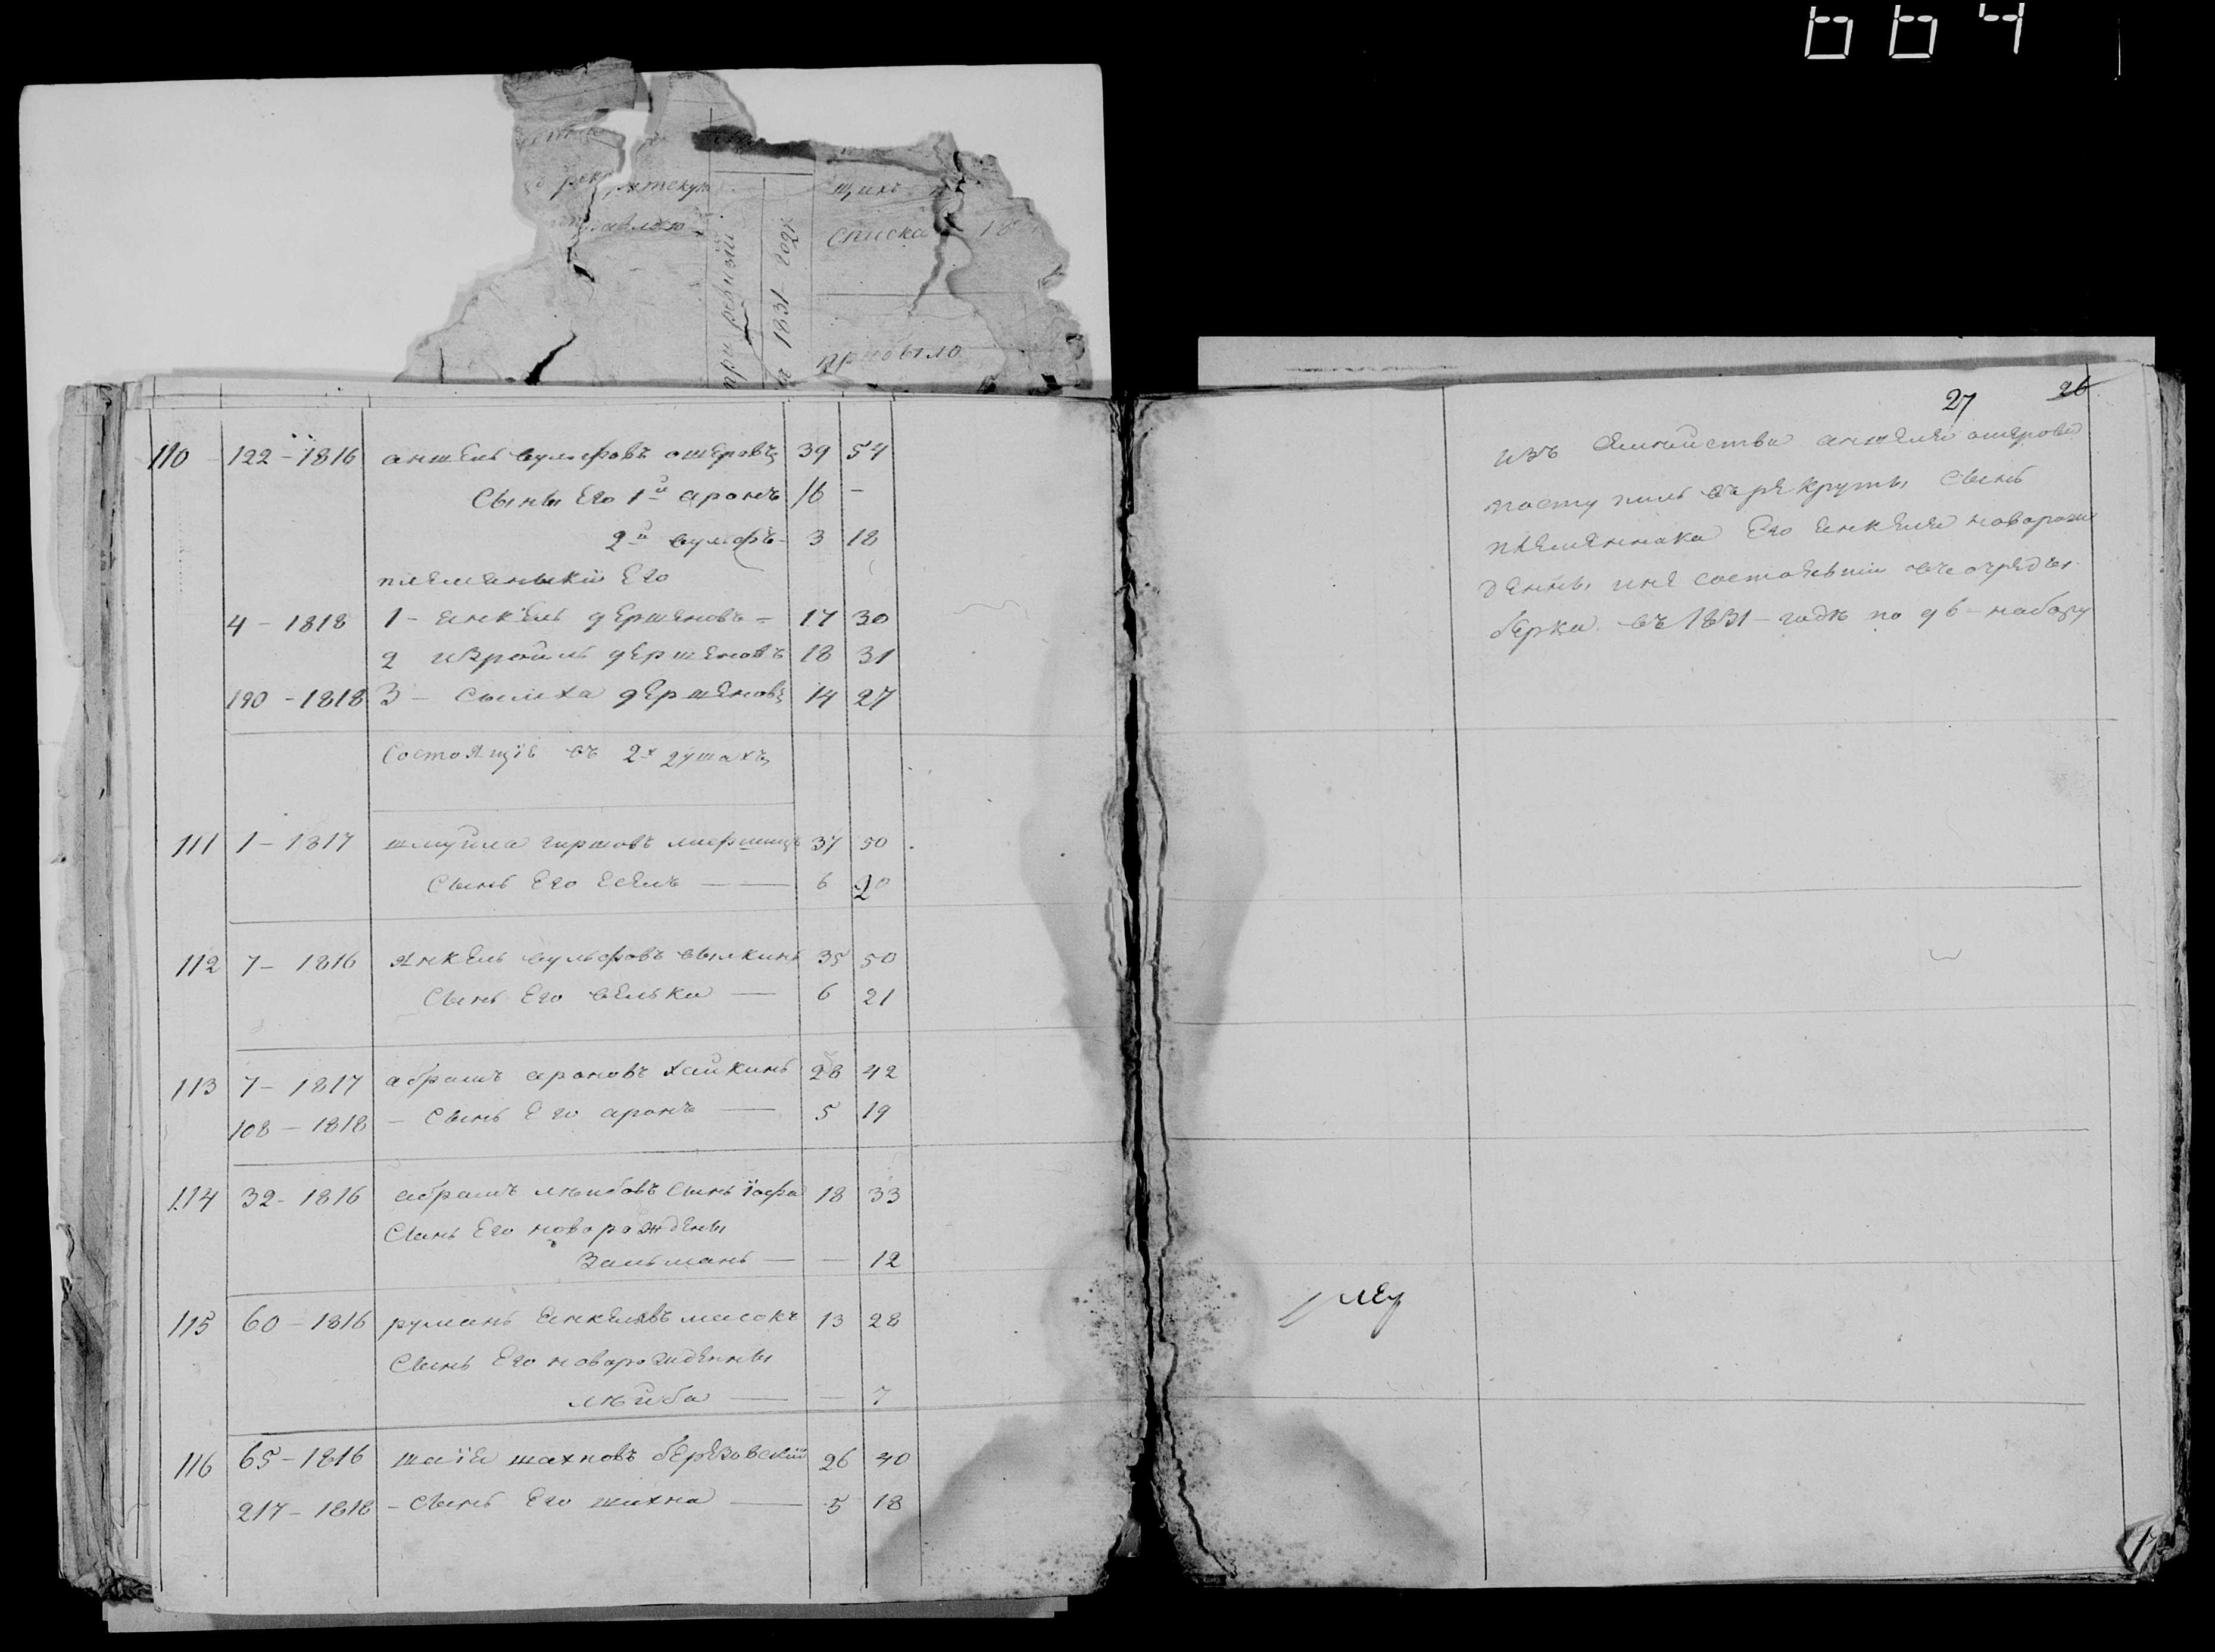 664
рекрутскую
при ревизіи
1831 году
щихъ
списка
прибыло
27 26
110 122 – 1816 аншель вульфовъ ошеровъ 39 54
Сыны Его 1й аронъ 16 –
2й вульфъ – 3 18
племеныки Его
4 – 1818 1 – енкель гершеновъ – 17 30
2 израиль гершеновъ 18 31
190 – 1818 3 – сымха гершеновъ 14 27
Состоящіе въ 2х душахъ
111 1 – 1817 шмуйла гиршовъ 37 50
Сынъ Его есель — 6 20
112 7 – 1816 Янкель вульфовъ вылкинъ 35 50
Сынъ Его велька — 6 21
113 7 – 1817 абрамъ ароновъ хайкинъ 28 42
108 – 1818 – Сынъ Его аронъ — 5 19
114 32 – 1816 абрамъ лѣибовъ Сынъ іофа 18 33
Сынъ Его новорожденны
Зальманъ — – 12
115 60 – 1816 румань енкелевъ масокъ 13 28
Сынъ Его новорожденны
лѣйба — – 7
116 65 – 1816 шаіа шахновъ березовскій 26 40
217 – 1818 – Сынъ Его шахна — 5 18
изъ Семѣйства аншеля ошерова
поступилъ въ рекруты Сынъ
племенника Его енкеля новорож
денны и не состоявши въ очереды
берка въ 1831 – годѣ по 96 – набору
17